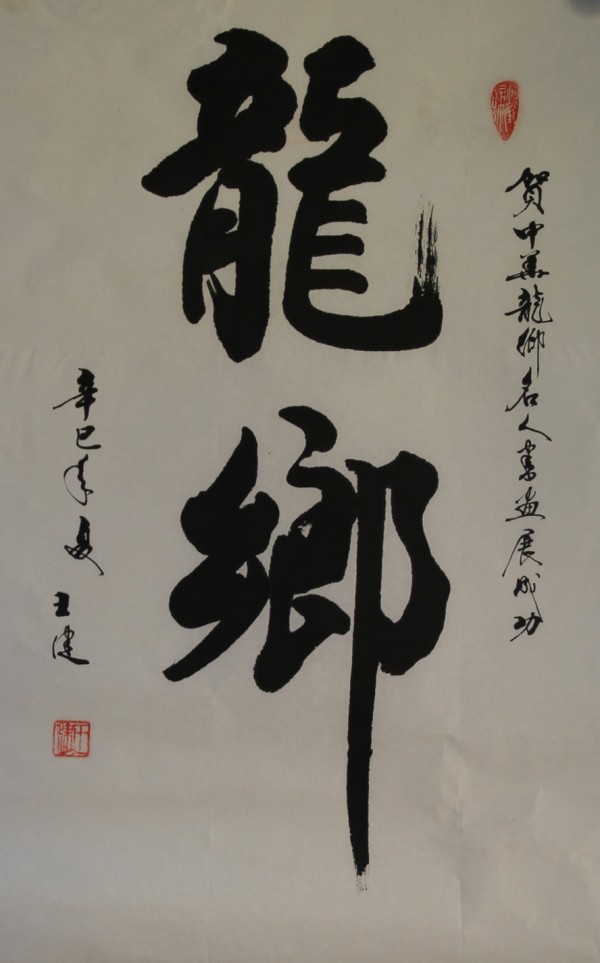 賀中華龍鄉名人書畫展成功
龍鄉
辛巳年夏
王健